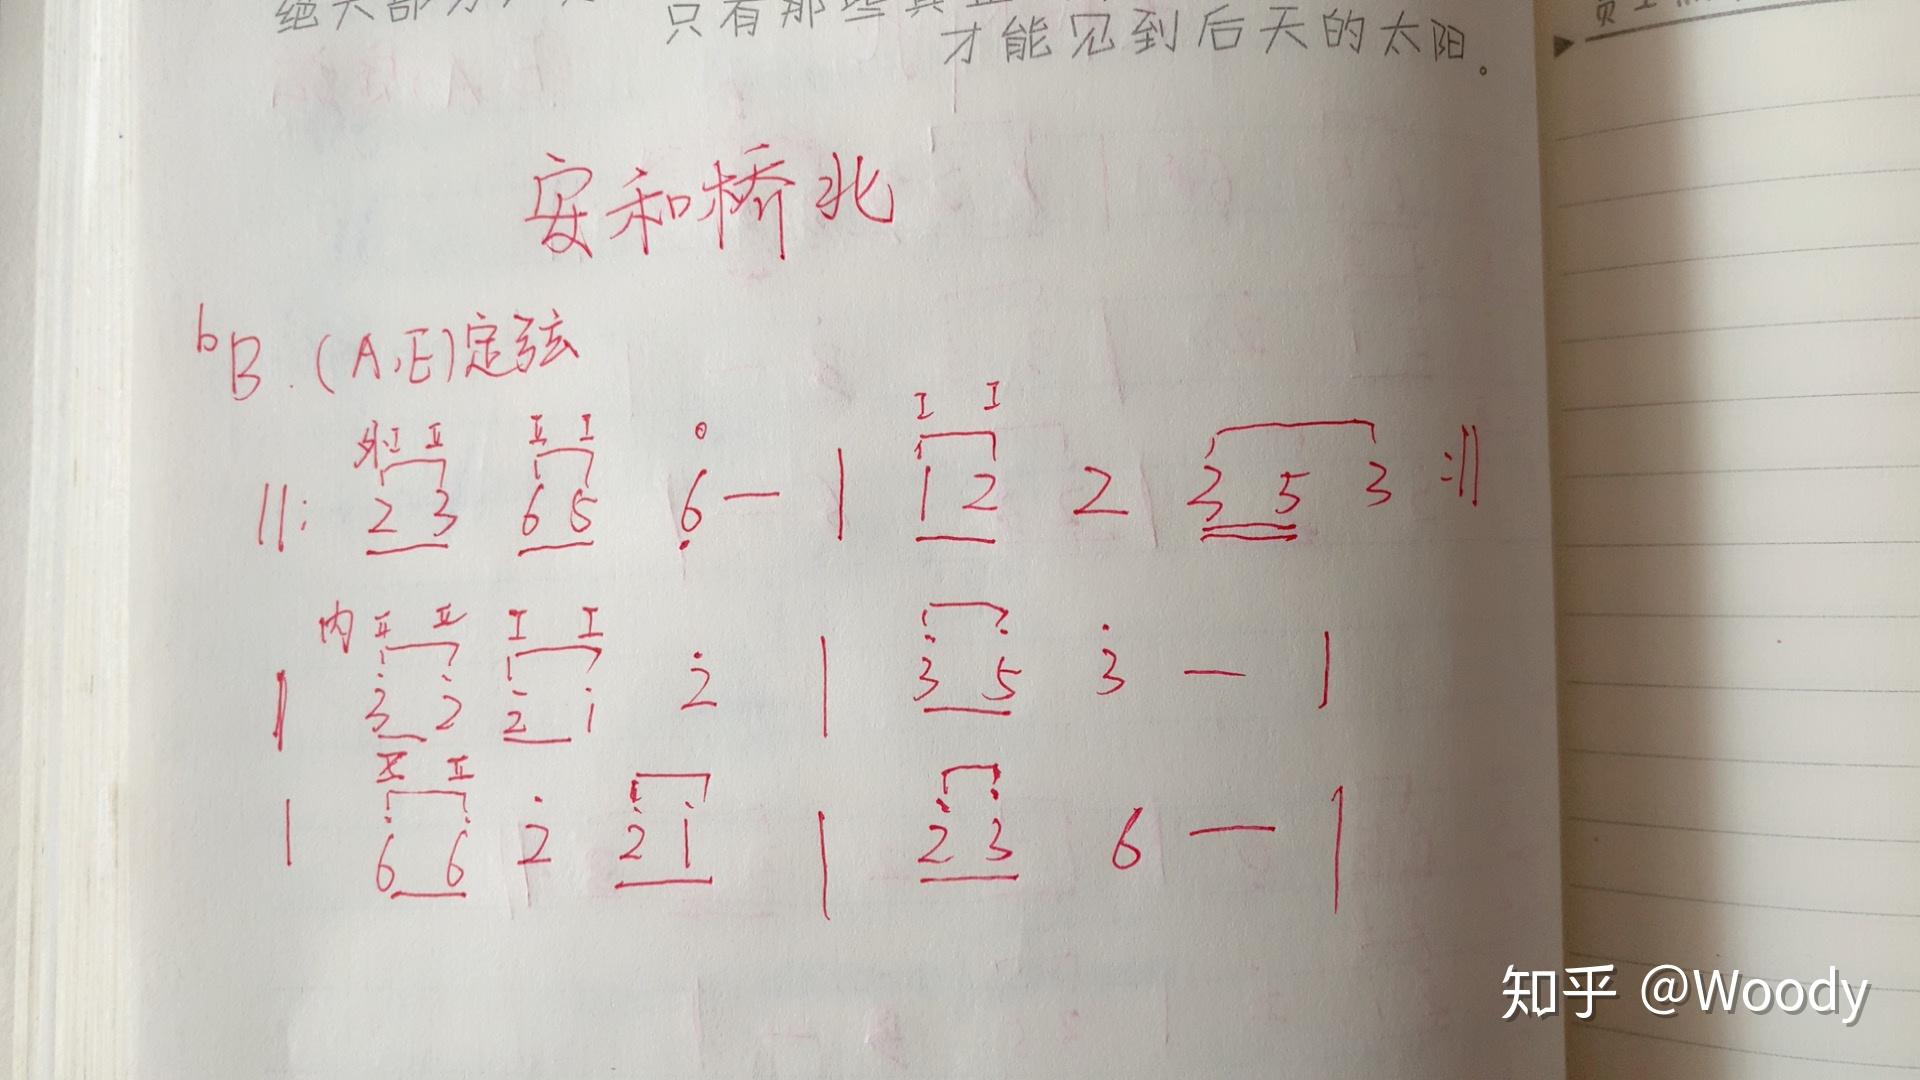 绝大部分
只有那些真正
才能见到后天的太阳。
安和桥北
bB.(A,E)定弦
外I II II I I I
||: 2 3 6 5 6̣ — | 1 2 2 3 5 3 :||
内 II II I I
| 3̇ 2̇ 2̇ 1̇ 2̇ | 3̇ 5̇ 3̇ — |
II II
| 6 6 2̇ 2̇ 1̇ | 2̇ 3̇ 6 — |
知乎 @Woody